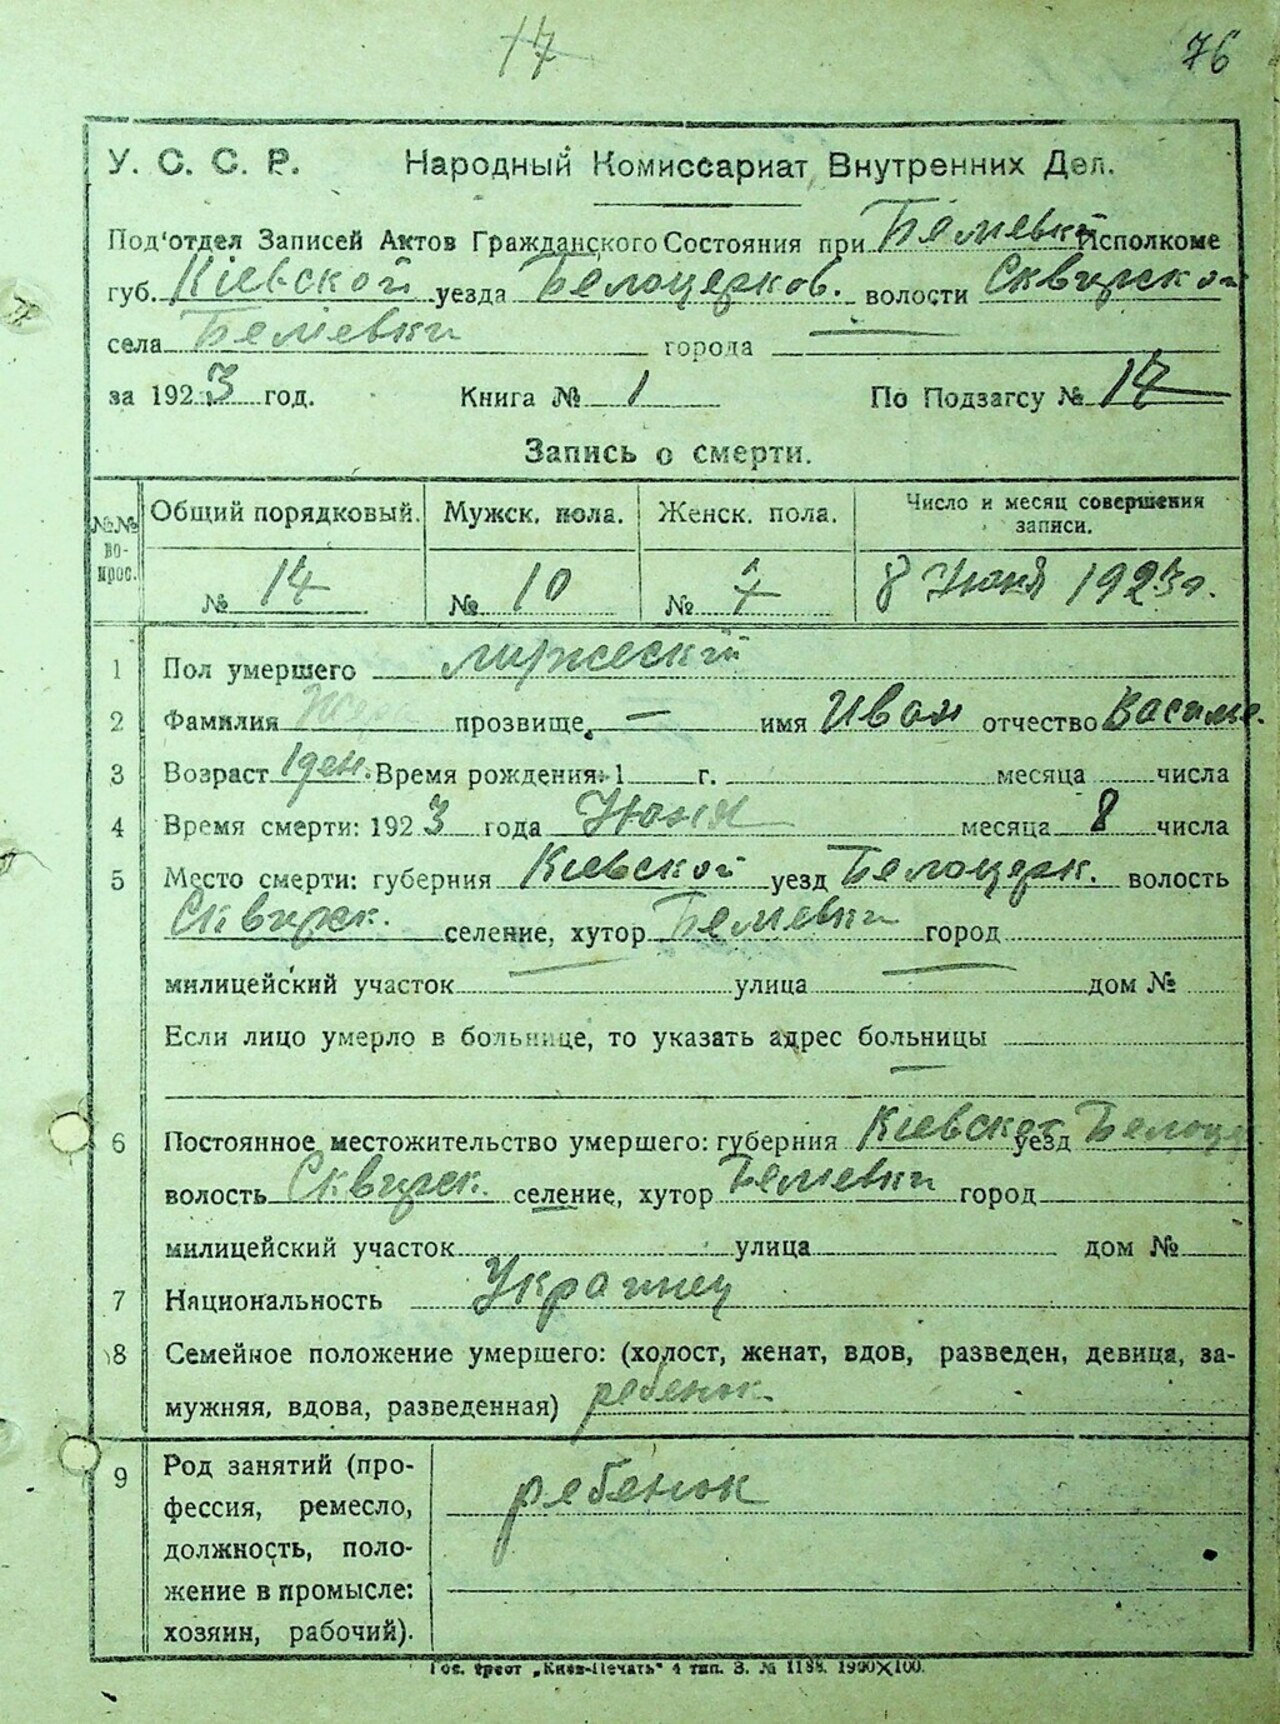 17 76
У. С. С. Р. Народный Комиссариат Внутренних Дел.
Под'отдел Записей Актов Гражданского Состояния при Исполкоме
губ. Кіевской уезда Белоцерков. волости Сквирской
села города
за 1923 год. Книга № 1 По Подзагсу №
Запись о смерти.
№№ во- прос. Общий порядковый. Мужск. пола. Женск. пола. Число и месяц совершения записи.
№ № 10 № 8 Июня 1923 г.
1 Пол умершего мужеский
2 Фамилия прозвище, — имя Иван отчество Василье.
3 Возраст 1 ден. Время рождения: 1 г. месяца числа
4 Время смерти: 1923 года Июня месяца 8 числа
5 Место смерти: губерния Кіевской уезд Белоцерк. волость
Сквирск. селение, хутор город
милицейский участок улица дом №
Если лицо умерло в больнице, то указать адрес больницы
6 Постоянное местожительство умершего: губерния Кіевской уезд Белоце
волость Сквирск. селение, хутор город
милицейский участок улица дом №
7 Национальность Украинец
8 Семейное положение умершего: (холост, женат, вдов, разведен, девица, за-
мужняя, вдова, разведенная) ребенок
9 Род занятий (про-
фессия, ремесло, ребенок
должность, поло-
жение в промысле:
хозяин, рабочий).
Гос. трест „Киев-Печать" 4 тип. З. № 1188. 1900×100.